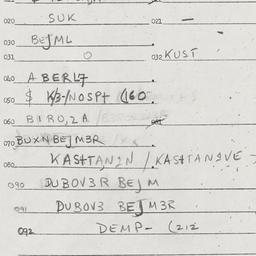 020 SUK 021 —
030 BEJML
031 O 032 KUST
040 ABERL7
050 $ K/3-/NOSPT (160
060 BIRO,2A
070 BUXNBEJM3R
080 KASHTAN2N / KASHTAN3VE
090 DUBOV3R BEJM
091 DUBOV3 BEJM3R
092 DEMP- (212